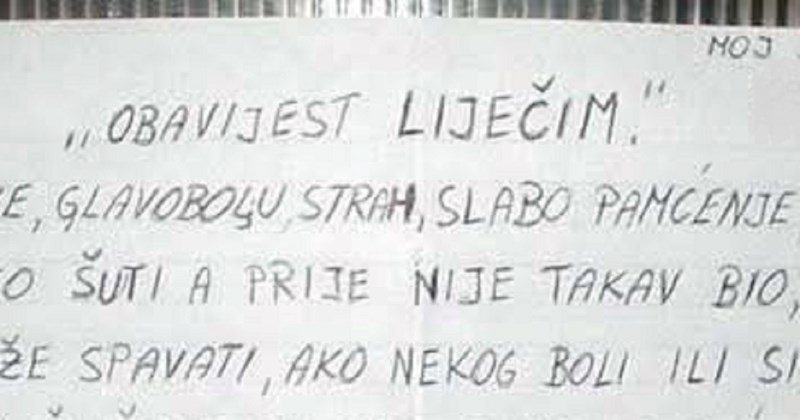 MOJ
„OBAVIJEST LIJEČIM."
E, GLAVOBOLJU, STRAH, SLABO PAMĆENJE
O ŠUTI A PRIJE NIJE TAKAV BIO,
ŽE SPAVATI, AKO NEKOG BOLI ILI SI